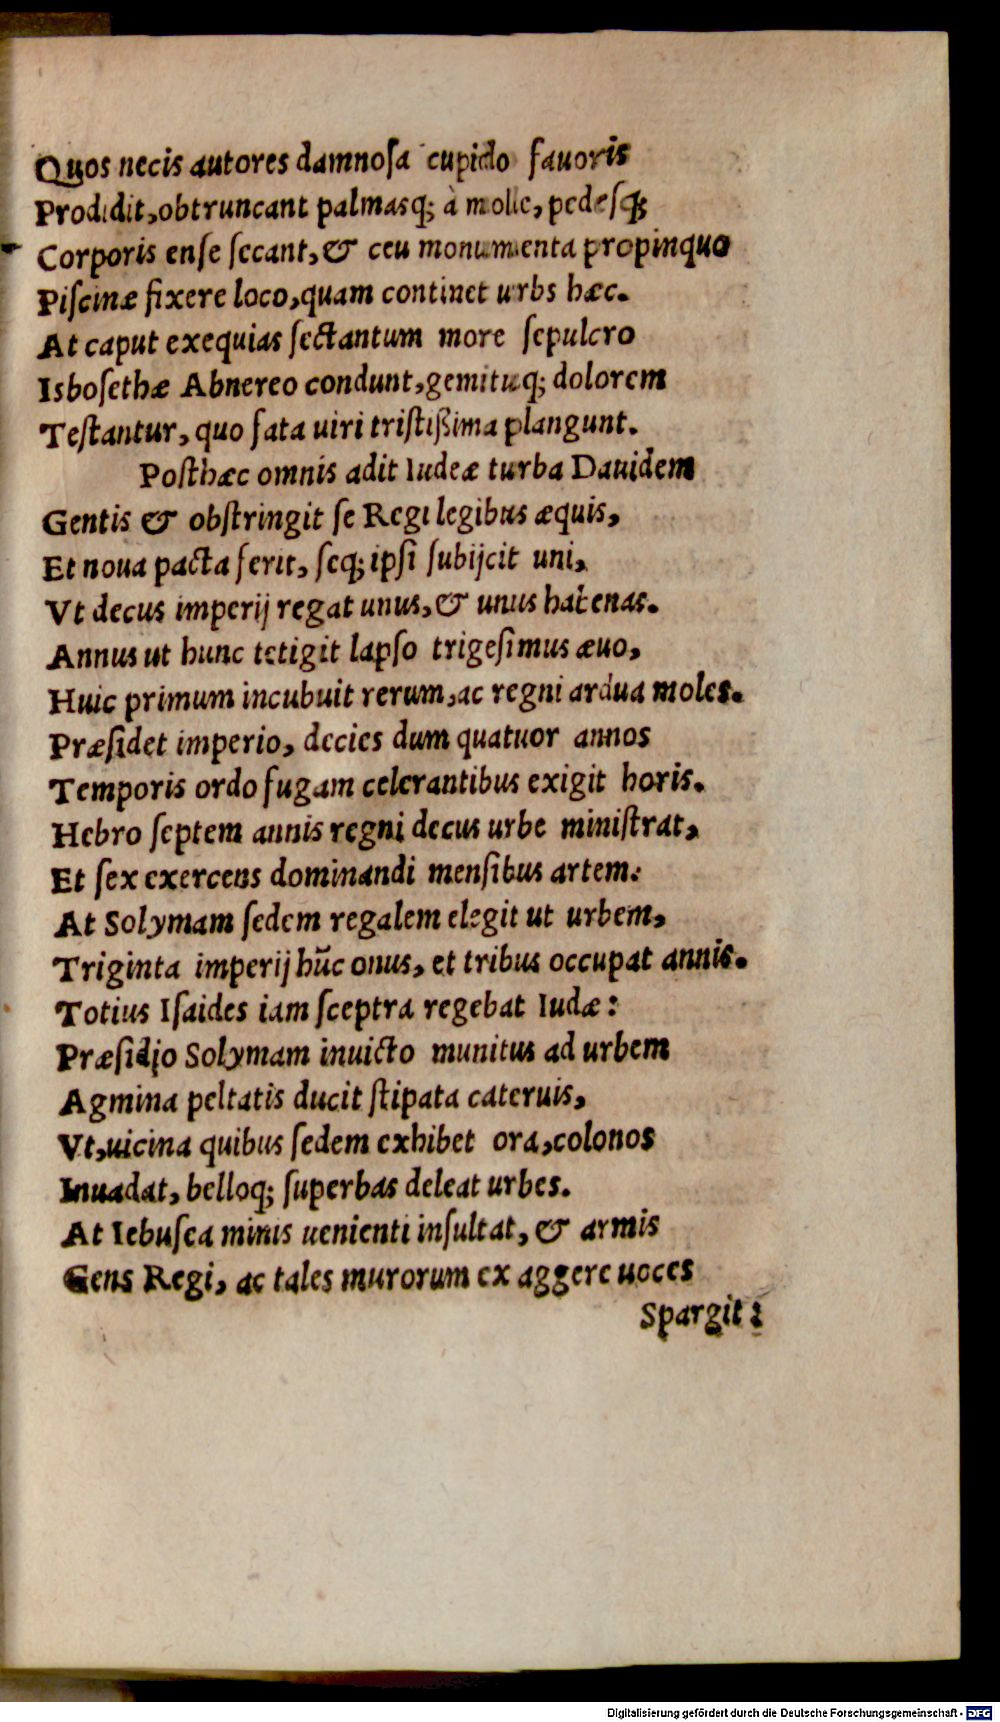 Quos necis autores damnoſa cupido fauoris
Prodidit, obtruncant palmasq; à mole, pedesq́;
Corporis enſe ſecant, & ceu monumenta propinquo
Piſcinæ fixere loco, quam continet urbs hæc.
At caput exequias ſectantum more ſepulcro
Isboſethæ Abnereo condunt, gemituq; dolorem
Teſtantur, quo fata uiri triſtißima plangunt.
Poſthæc omnis adit Iudeæ turba Dauidem
Gentis & obſtringit ſe Regi legibus æquis,
Et noua pacta ferit, ſeq; ipſi ſubijcit uni,
Vt decus imperij regat unus, & unus habenas.
Annus ut hunc tetigit lapſo trigeſimus æuo,
Huic primum incubuit rerum, ac regni ardua moles.
Præſidet imperio, decies dum quatuor annos
Temporis ordo fugam celerantibus exigit horis.
Hebro ſeptem annis regni decus urbe miniſtrat,
Et ſex exercens dominandi menſibus artem:
At Solymam ſedem regalem elegit ut urbem,
Triginta imperij hūc onus, et tribus occupat annis.
Totius Iſaides iam ſceptra regebat Iudæ:
Præſidio Solymam inuicto munitus ad urbem
Agmina peltatis ducit ſtipata cateruis,
Vt, uicina quibus ſedem exhibet ora, colonos
Inuadat, belloq; ſuperbas deleat urbes.
At Iebuſea minis uenienti inſultat, & armis
Gens Regi, ac tales murorum ex aggere uoces
Spargit:
Digitalisierung gefördert durch die Deutsche Forschungsgemeinschaft - DFG